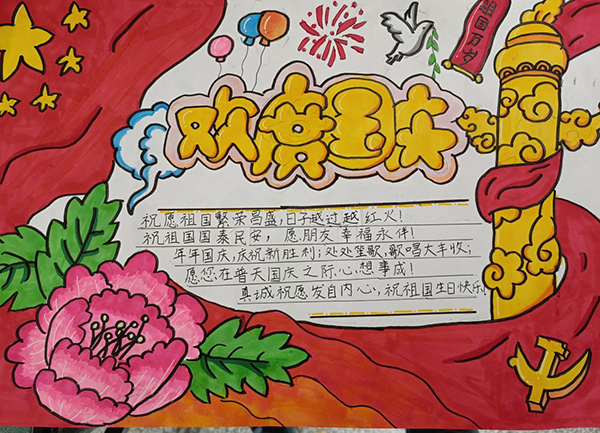 祖国万岁
欢度国庆
祝愿祖国繁荣昌盛,日子越过越红火!
祝祖国国泰民安，愿朋友幸福永伴!
年年国庆,庆祝新胜利;处处笙歌,歌唱大丰收;
愿您在普天国庆之际,心想事成!
真诚祝愿发自内心,祝祖国生日快乐!